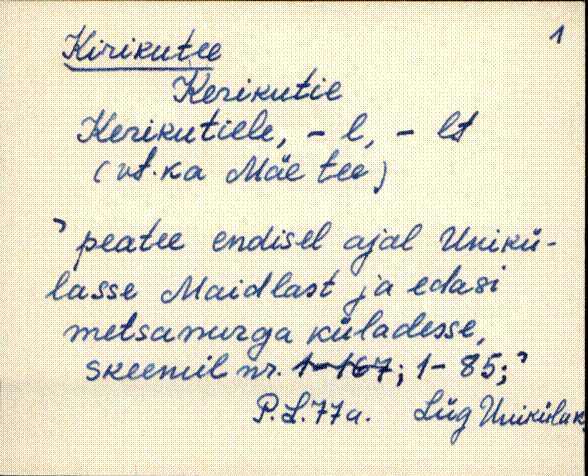 1
Kirikutee
Kerikutie
Kerikutiele, - l, - lt
(vt. ka Mäe tee)
’peatee endisel ajal Unikü-
lasse Maidlast ja edasi
metsanurga küladesse,
skeemil nr. 1-167; 1-85;’
P.L.77a. Lüg Uniküla k